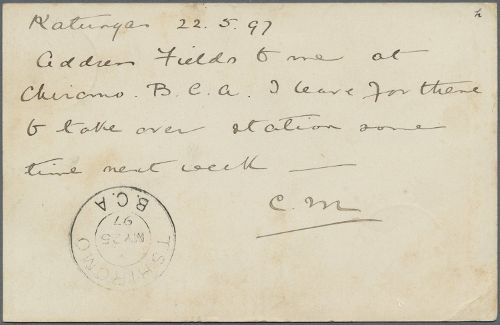 Katungas 22.5.97
Address Fields to me at
Chiromo. B.C.A. I leave for there
to take over station some
time next week —
C. M
TSHIROMO
B.C.A
MY 25
97